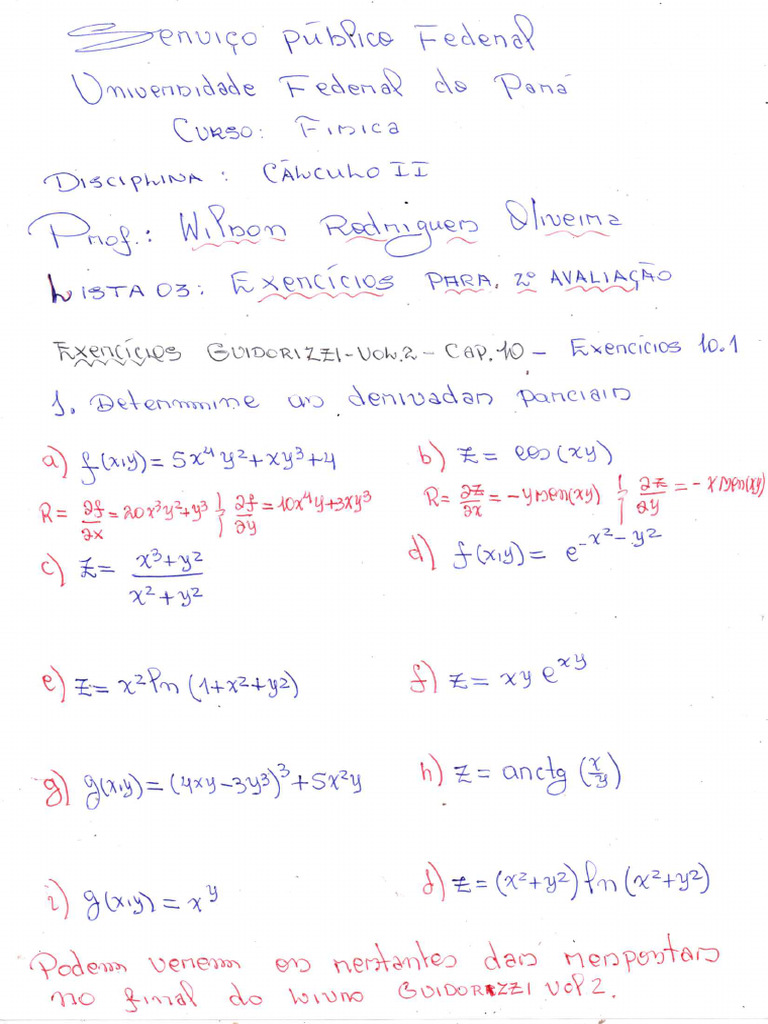 Serviço público Federal
Universidade Federal do Pará
Curso: Física
Disciplina: Cálculo II
Prof.: Wilson Rodrigues Oliveira
Lista 03: Exercícios para 2ª Avaliação
Exercícios GUIDORIZZI - Vol. 2 - Cap. 10 - Exercícios 10.1
1. Determmine as derivadas parciais
a) f(x,y) = 5x⁴y² + xy³ + 4
b) z = cos(xy)
R = ∂f/∂x = 20x³y² + y³ } ∂f/∂y = 10x⁴y + 3xy³
R = ∂z/∂x = -y sen(xy) } ∂z/∂y = -x sen(xy)
c) z = (x³ + y²)/(x² + y²)
d) f(x,y) = e^(-x² - y²)
e) z = x² ln (1 + x² + y²)
f) z = xy e^(xy)
g) g(x,y) = (4xy - 3y³)³ + 5x²y
h) z = arctg (x/y)
i) g(x,y) = x^y
j) z = (x² + y²) ln (x² + y²)
Podem verem os restantes das respostas
no final do livro GUIDORIZZI Vol 2.